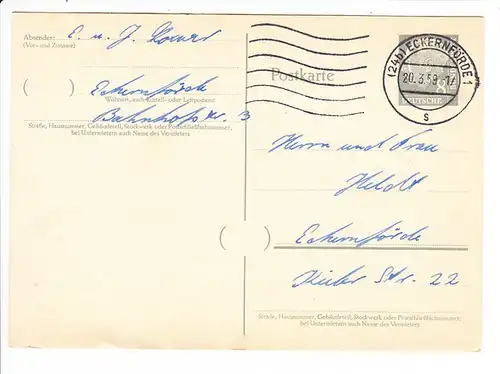 Absender: E. u. J.
(Vor- und Zuname)
Eckernförde
Wohnort, auch Zustell- oder Leitpostamt
Bahnhofstr. 3
Straße, Hausnummer, Gebäudeteil, Stockwerk oder Postschließfachnummer,
bei Untermietern auch Name des Vermieters
Postkarte
(24b) ECKERNFÖRDE 1
20.3.59-17
s
8
DEUTSCHE
Herrn und Frau
Heldt
Eckernförde
Kieler Str. 22
Straße, Hausnummer, Gebäudeteil, Stockwerk oder Postschließfachnummer,
bei Untermietern auch Name des Vermieters